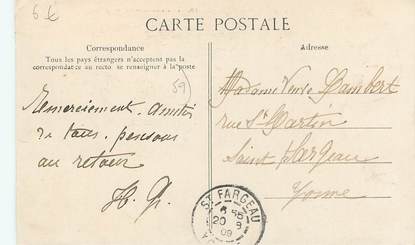 6 €
CARTE POSTALE
Correspondance
Tous les pays étrangers n'acceptent pas la
correspondance au recto se renseigner à la poste
Adresse
59
Remerciement. Amitiés
de tous. pensons
au retour
Madame Veuve Lambert
rue St Martin
Saint Fargeau
Yonne
ST FARGEAU
20 9
09